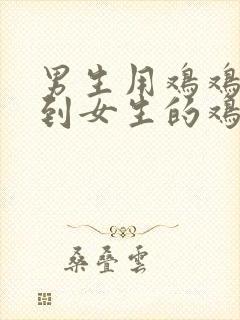 男生用鸡鸡
到女生的鸡
桑叠雲